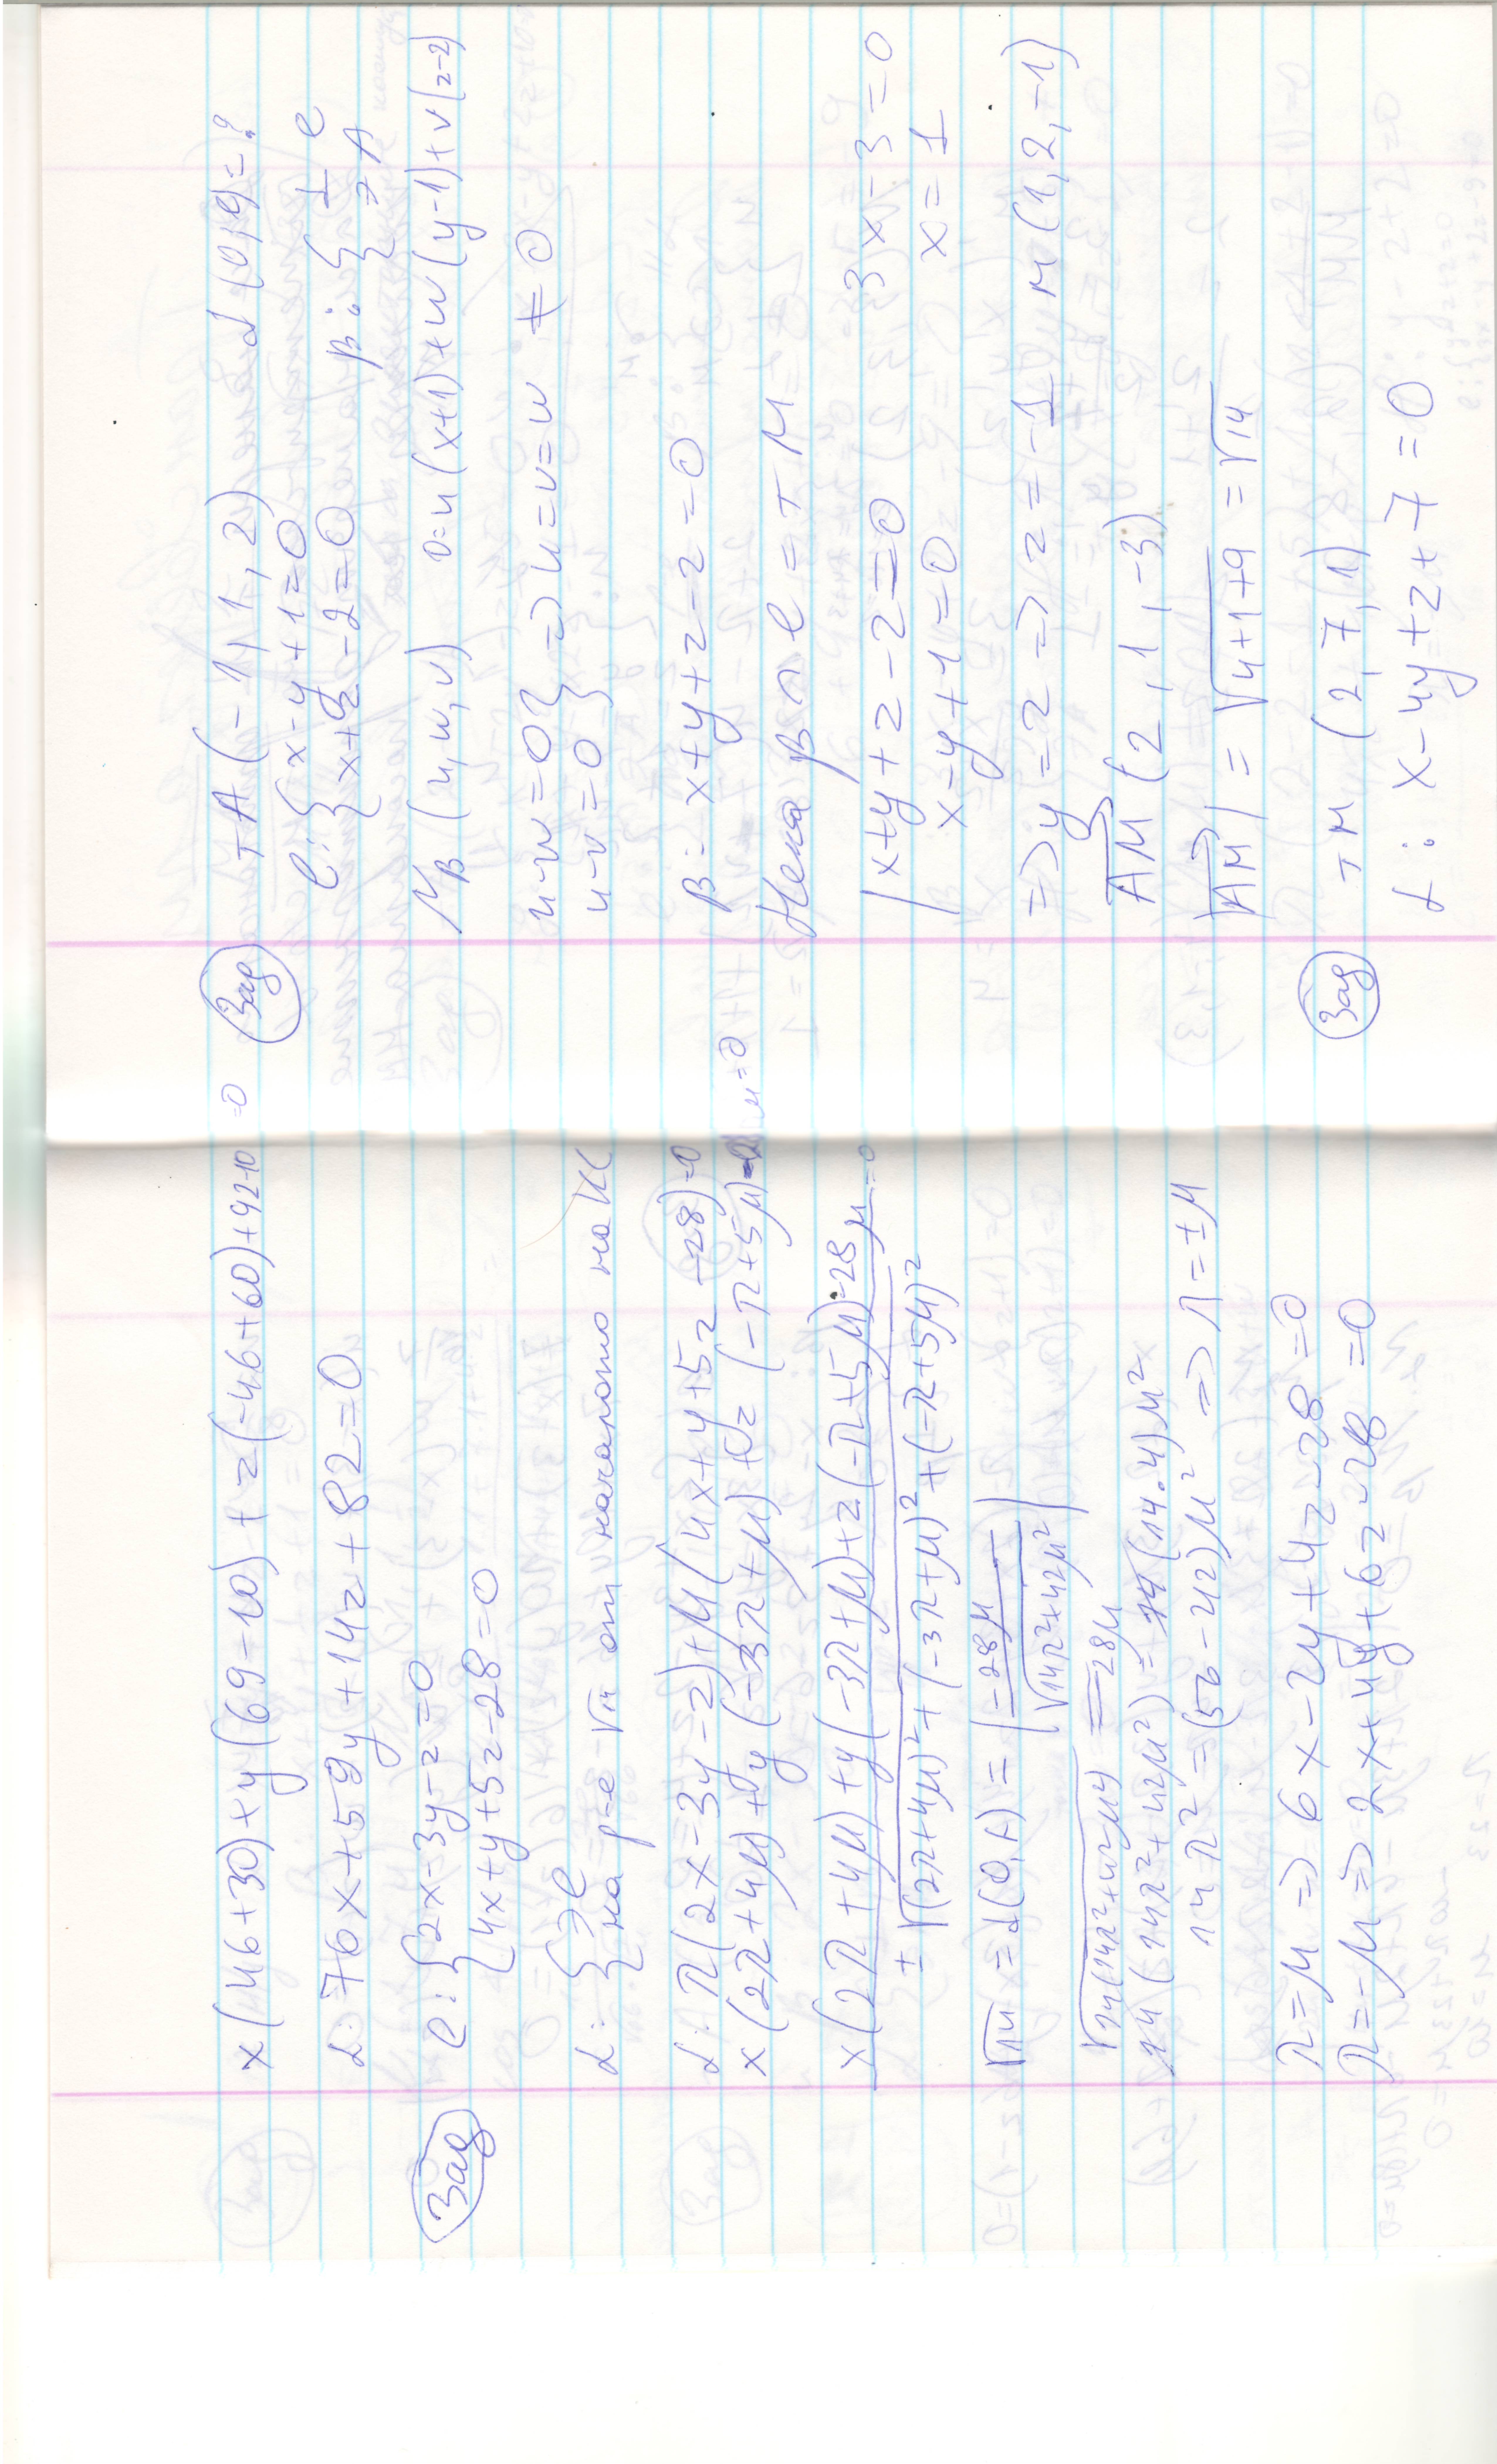 x(46+30)+y(69-10)+z(-46+60)+92-10=0
α: 76x+59y+14z+82=0
Зад e: { 2x-3y-z=0
4x+y+5z-28=0
α: { ∋ e
на р-е √14 от началото на КС
α: λ(2x-3y-z)+μ(4x+y+5z-28)=0
x(2λ+4μ)+y(-3λ+μ)+z(-λ+5μ)-28μ=0
x(2λ+4μ)+y(-3λ+μ)+z(-λ+5μ)-28μ=0
±√(2λ+4μ)²+(-3λ+μ)²+(-λ+5μ)²
√14 = d(O,A) = |-28μ / √14λ²+42μ²|
√14(14λ²+42μ²) = 28μ
14(14λ²+42μ²) = (14.4)μ²
14λ² = (56-42)μ² => λ=±μ
λ=μ => 6x-2y+4z-28=0
λ=-μ => 2x+4y+6z-28=0
Зад т A(-1,1,2) d(A,e)=?
e: { x-y+1=0
x+z-2=0 β: { ⊥ e
∋ A
N_β(u,w,v) 0=u(x+1)+w(y-1)+v(z-2)
u-w=0 } => u=v=w ≠0
u-v=0
β= x+y+z-2=0
Нека β ∩ e = т M
| x+y+z-2=0 3x-3=0
x-y+1=0 x=1
=> y=2 => z=-1 M(1,2,-1)
AM(2,1,-3)
|AM| = √4+1+9 = √14
Зад т M(2,7,1)
α: x-4y+z+7=0